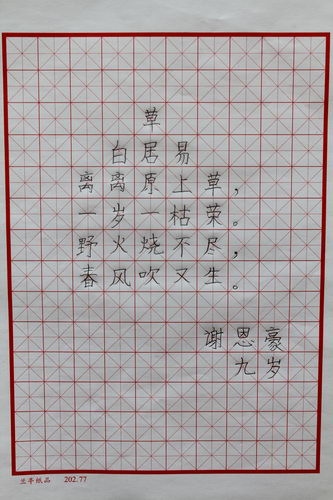 草
白居易
离离原上草，
一岁一枯荣。
野火烧不尽，
春风吹又生。
谢恩豪
九岁
兰亭纸品 202.77